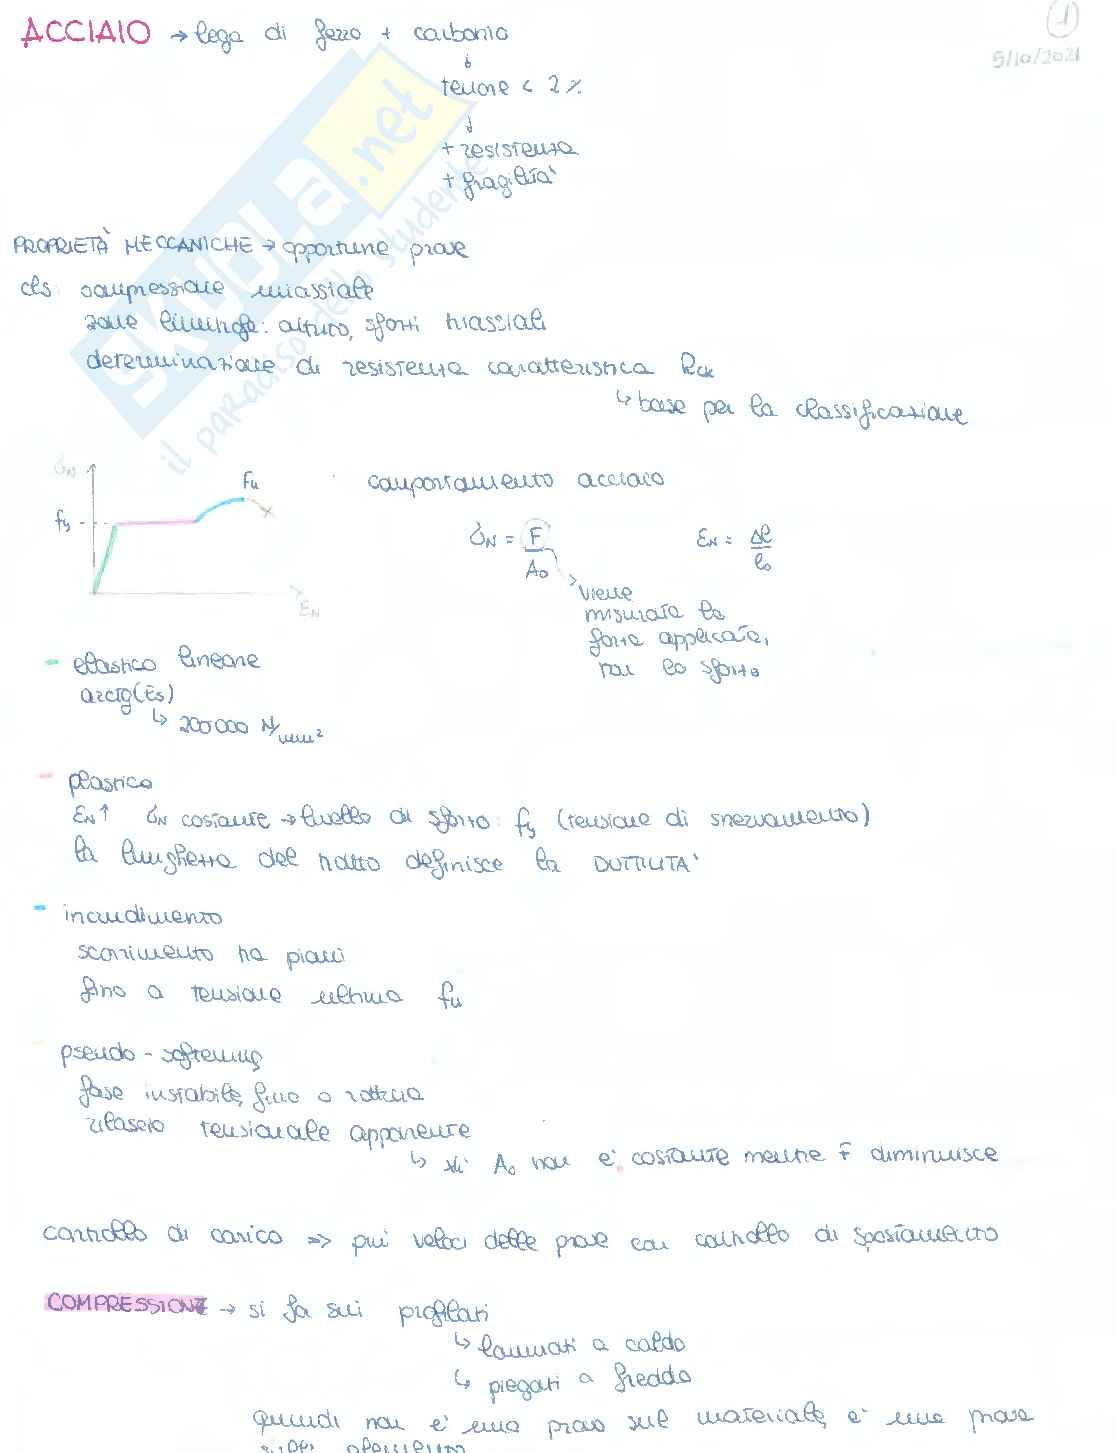 1
5/10/2021
ACCIAIO → lega di ferro + carbonio
↓
tenore < 2 %
↓
+ resistenza
+ fragilità
SKUOLA.net
il paradiso dello studente
PROPRIETÀ MECCANICHE → opportune prove
cls: compressione uniassiale
zone limitrofe: attrito, sforzi triassiali
determinazione di resistenza caratteristica Rck
↳ base per la classificazione
σN
fy
fu
εN
comportamento acciaio
σN = F/A₀
εN = Δl/l₀
viene
misurata la
forza applicata,
non lo sforzo
- elastico lineare
arctg(Es)
↳ 200000 N/mm²
- plastico
εN↑ σN costante → livello di sforzo: fy (tensione di snervamento)
la lunghezza del tratto definisce la DUTTILITA'
- incrudimento
scorrimento tra piani
fino a tensione ultima fu
- pseudo-softening
fase instabile, fino a rottura
rilascio tensionale apparente
↳ A₀ non è costante mentre F diminuisce
controllo di carico => più veloci delle prove con controllo di spostamento
COMPRESSIONE → si fa sui profilati
↳ laminati a caldo
↳ piegati a freddo
quindi non è una prova sul materiale, è una prova
sull' elemento